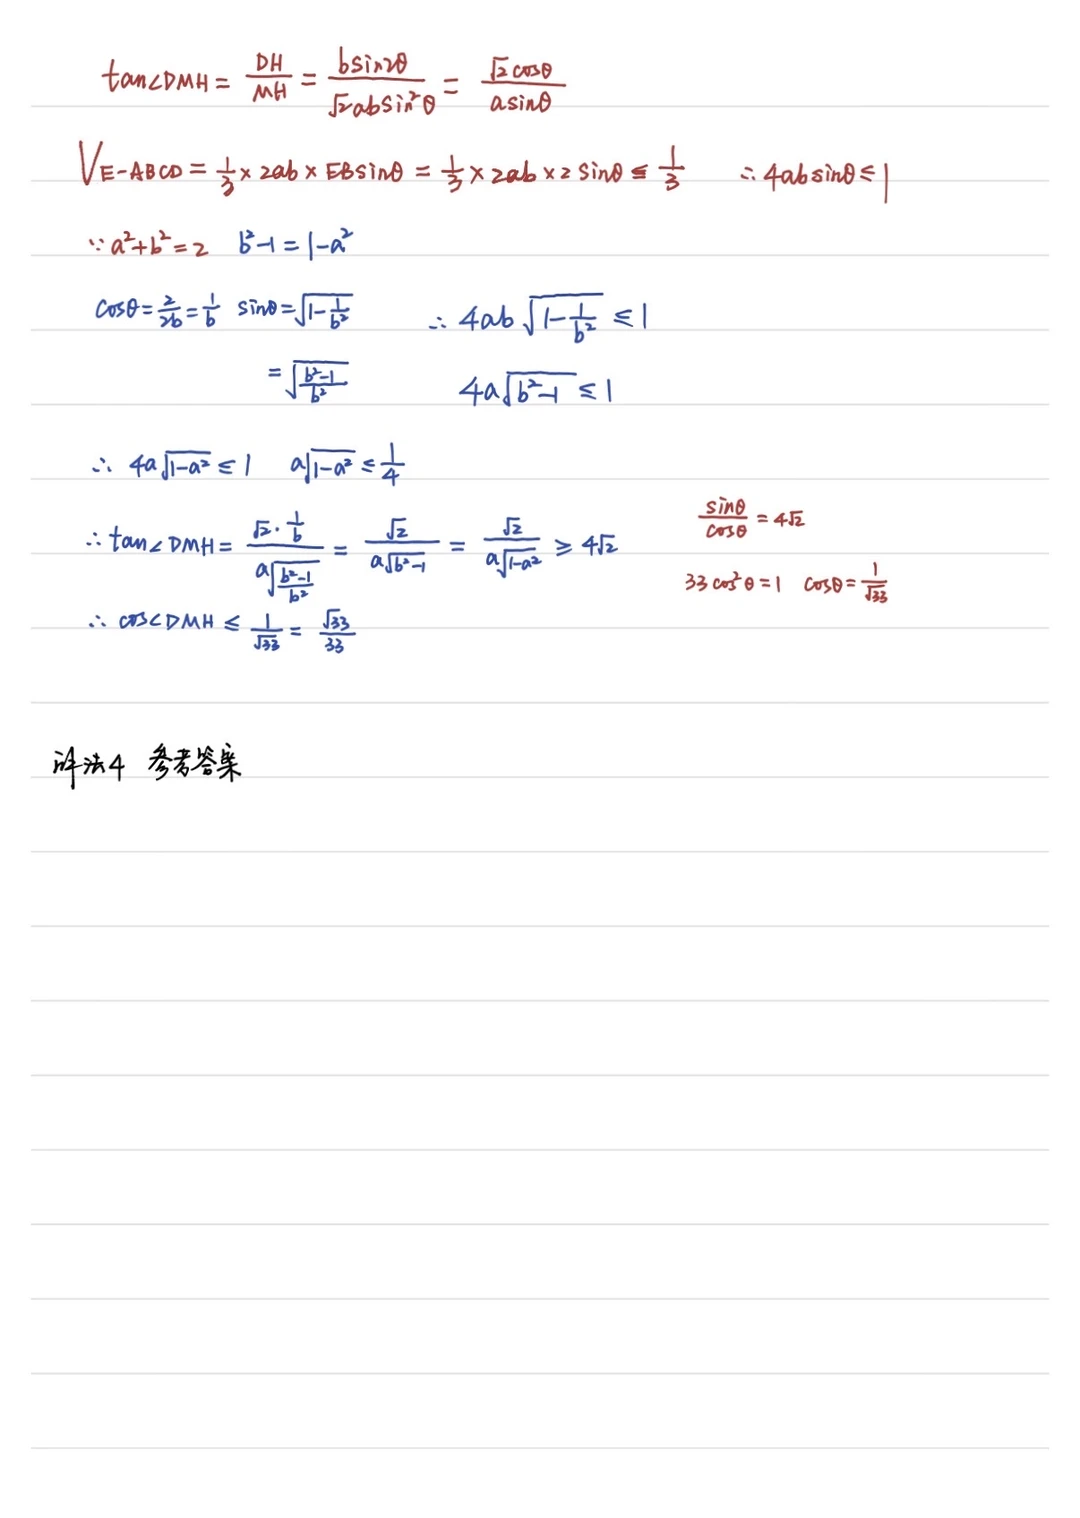 tan∠DMH = DH/MH = bsin2θ/√2absin²θ = √2cosθ/asinθ
V_{E-ABCD} = 1/3 × 2ab × EBsinθ = 1/3 × 2ab × 2 sinθ ≤ 1/3 ∴ 4absinθ ≤ 1
∵ a²+b² = 2 b²-1 = 1-a²
cosθ = 2/2b = 1/b sinθ = √(1-1/b²) ∴ 4ab√(1-1/b²) ≤ 1
= √((b²-1)/b²) 4a√(b²-1) ≤ 1
∴ 4a√(1-a²) ≤ 1 a√(1-a²) ≤ 1/4
∴ tan∠DMH = (√2·1/b)/(a√((b²-1)/b²)) = √2/(a√(b²-1)) = √2/(a√(1-a²)) ≥ 4√2
sinθ/cosθ = 4√2
33cos²θ = 1 cosθ = 1/√33
∴ cos∠DMH ≤ 1/√33 = √33/33
解法4 参考答案